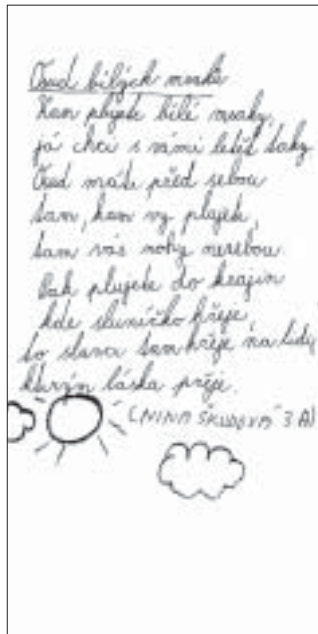 Osud bílých mraků
Kam plujete bílé mraky,
já chci s vámi letět taky.
Osud máte před sebou
tam, kam vy plujete,
tam vás nohy nesebou.
Pak plujete do krajin
kde sluníčko hřeje
to slunce tam hřeje na lidi,
kterým láska přeje.
(NINA ŠKUDOVÁ 3 A)